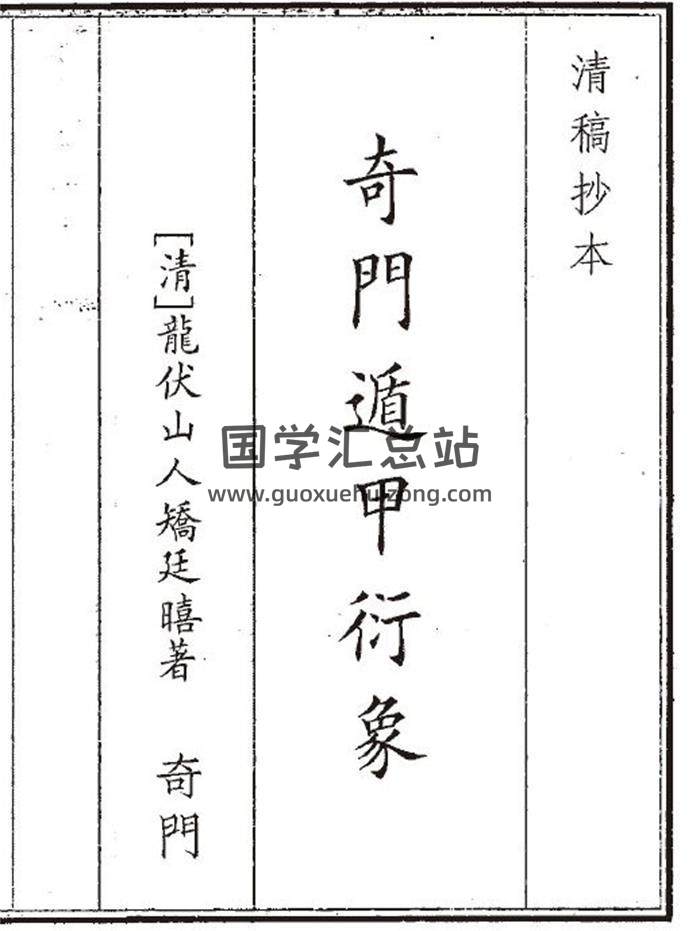 清稿抄本
奇門遁甲衍象
[清]龍伏山人矯廷暿著 奇門
国学汇总站
www.guoxuehuizong.com